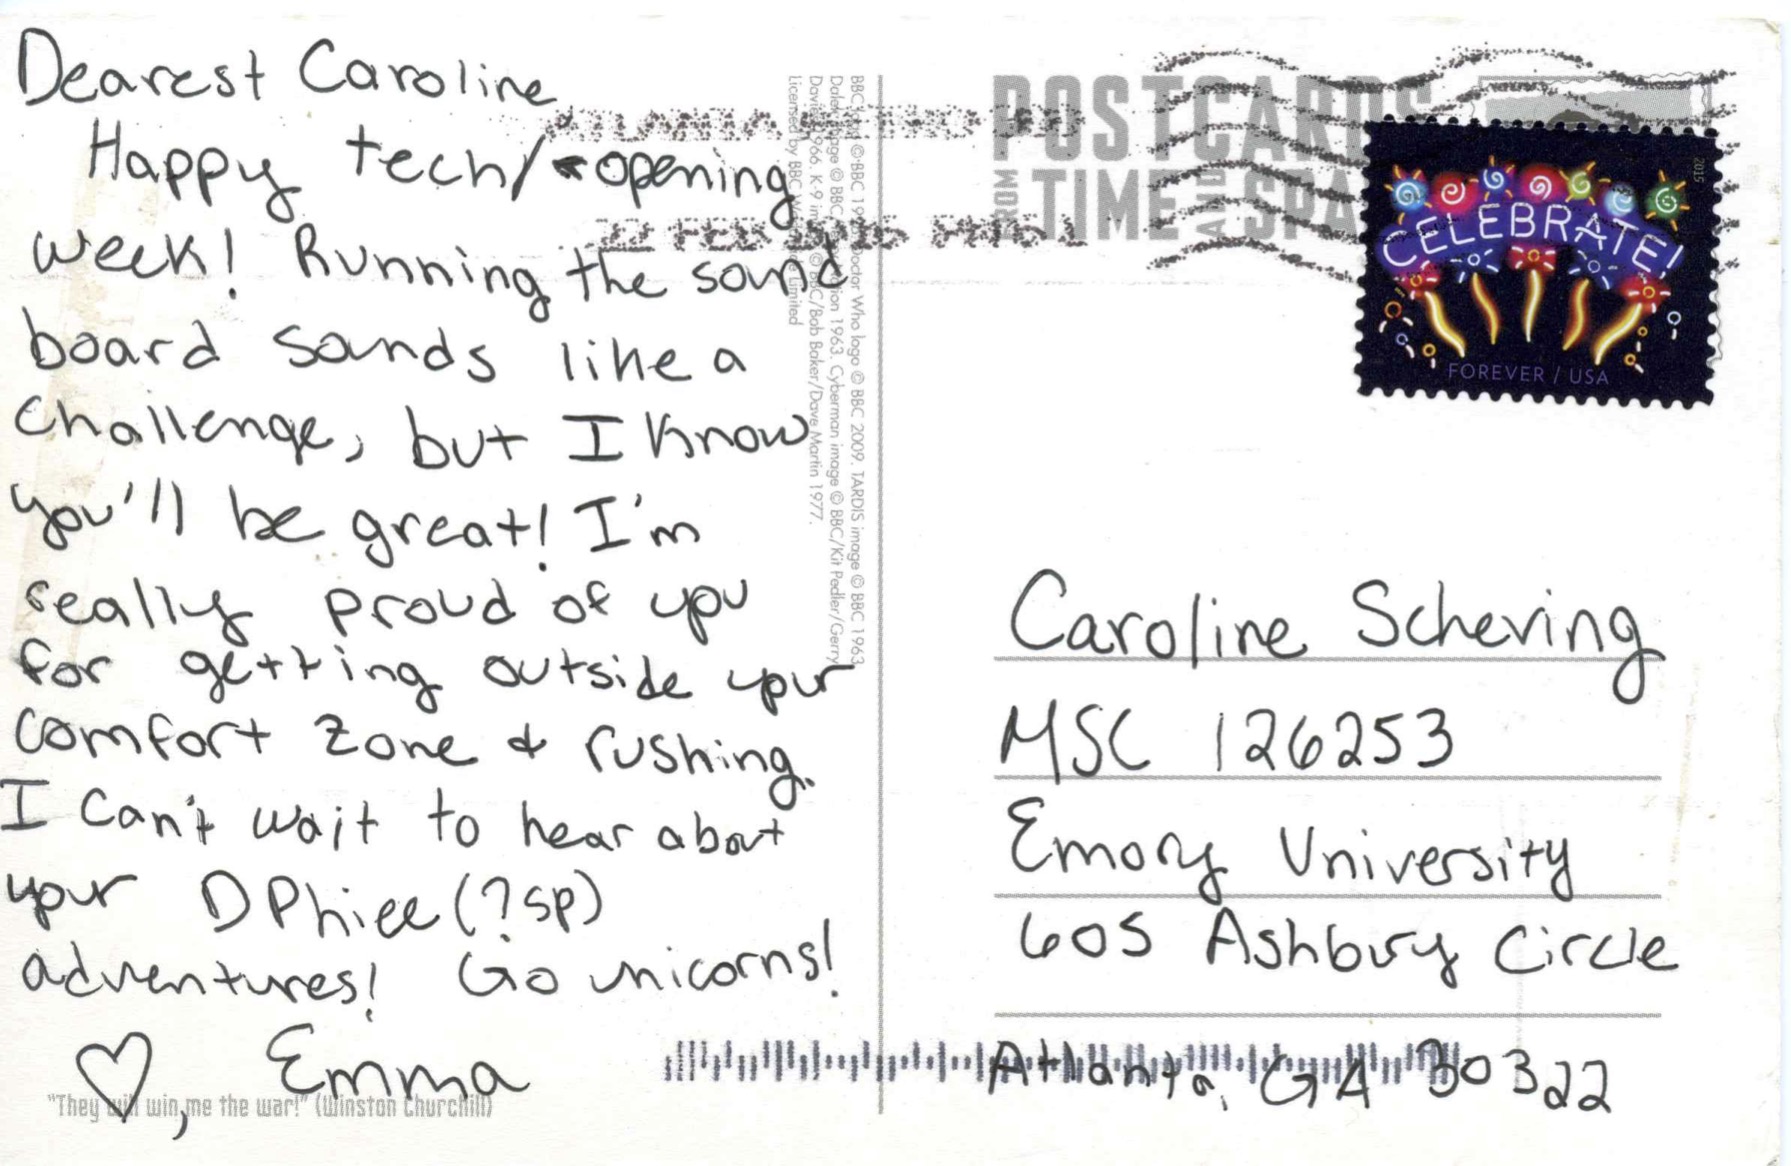 Dearest Caroline
Happy tech/opening
week! Running the sound
board sounds like a
challenge, but I know
you'll be great! I'm
really proud of you
for getting outside your
comfort zone & rushing.
I can't wait to hear about
your DPhiee (?sp)
adventures! Go unicorns!
♡, Emma
"They will win me the war!" (Winston Churchill)
BBC 2009. TARDIS image © BBC 1963.
1963. Cyberman image © BBC/Kit Pedler/Gerry
BBC/Bob Baker/Dave Martin 1977.
Licensed by BBC Limited
ATLANTA
22 FEB
POSTCARDS
FROM TIME AND SPA
2015
CELEBRATE!
FOREVER / USA
Caroline Scheving
MSC 126253
Emory University
605 Ashbury Circle
Atlanta, GA 30322